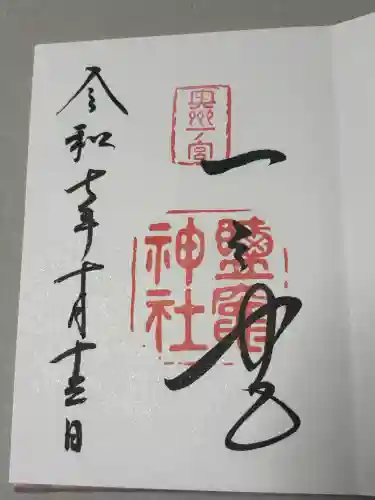 奥州一宮
一之宮
鹽竈
神社
令和七年十月十六日